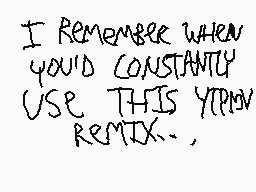 I REMEMBER WHEN
YOU'D CONSTANTLY
USE THIS YTPMV
REMIX..,